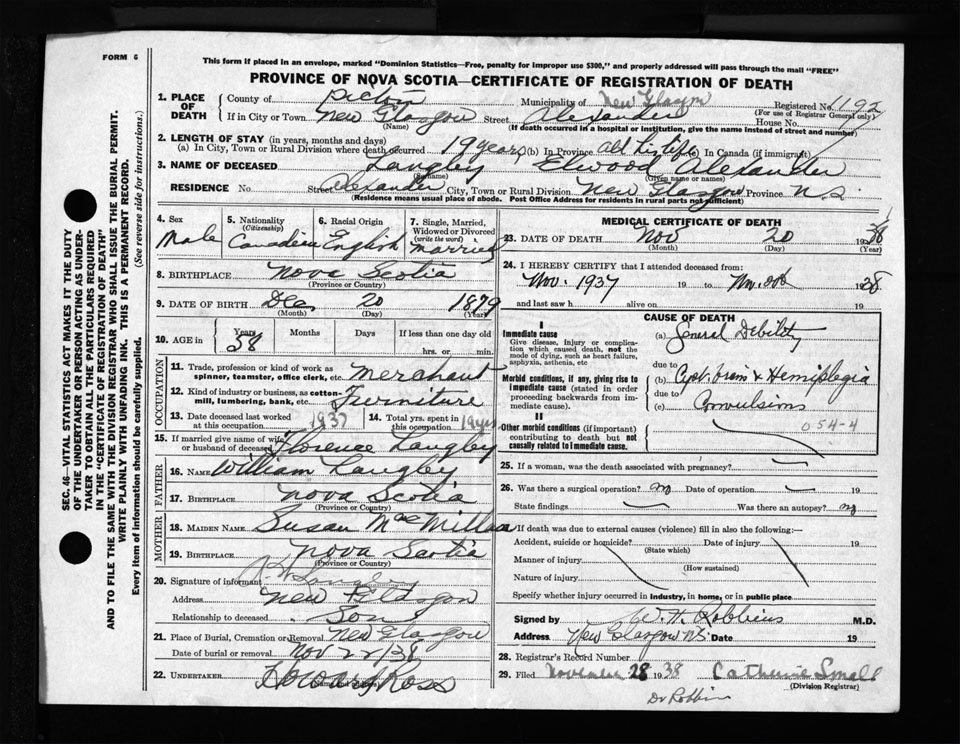 FORM 6
This form if placed in an envelope, marked "Dominion Statistics—Free, penalty for improper use $300," and properly addressed will pass through the mail "FREE"
PROVINCE OF NOVA SCOTIA—CERTIFICATE OF REGISTRATION OF DEATH
1. PLACE OF DEATH County of Pictou Municipality of New Glasgow Registered No. 1192
(For use of Registrar General only)
If in City or Town New Glasgow Street Alexander House No.
(Name) (If death occurred in a hospital or institution, give the name instead of street and number)
2. LENGTH OF STAY (in years, months and days)
(a) In City, Town or Rural Division where death occurred 19 years (b) In Province All his life (c) In Canada (if immigrant)
3. NAME OF DECEASED Langley Elwood Alexander
(Surname) (Given name or names)
RESIDENCE No. Street Alexander City, Town or Rural Division New Glasgow Province N.S
(Residence means usual place of abode. Post Office Address for residents in rural parts not sufficient)
4. Sex Male
5. Nationality (Citizenship) Canadian
6. Racial Origin English
7. Single, Married, Widowed or Divorced (write the word) Married
8. BIRTHPLACE Nova Scotia
(Province or Country)
9. DATE OF BIRTH Dec 20 1879
(Month) (Day) (Year)
10. AGE in Years 58 Months Days If less than one day old
hrs. or min.
OCCUPATION
11. Trade, profession or kind of work as spinner, teamster, office clerk, etc. Merchant
12. Kind of industry or business, as cotton-mill, lumbering, bank, etc. Furniture
13. Date deceased last worked at this occupation 1937
14. Total yrs. spent in this occupation 19 yrs
15. If married give name of wife or husband of deceased Florence Langley
FATHER
16. NAME William Langley
17. BIRTHPLACE Nova Scotia
(Province or Country)
MOTHER
18. MAIDEN NAME Susan MacMillan
19. BIRTHPLACE Nova Scotia
(Province or Country)
20. Signature of informant Langley
Address New Glasgow
Relationship to deceased Son
21. Place of Burial, Cremation or Removal New Glasgow
Date of burial or removal Nov 22/38
22. UNDERTAKER Howard Ross
(Name and address)
MEDICAL CERTIFICATE OF DEATH
23. DATE OF DEATH Nov 20 1938
(Month) (Day) (Year)
24. I HEREBY CERTIFY that I attended deceased from:
Nov. 1937 19 to Nov. 20 1938
and last saw h alive on 19
CAUSE OF DEATH
I
Immediate cause
Give disease, injury or complication which caused death, not the mode of dying, such as heart failure, asphyxia, asthenia, etc
(a) General Debility
due to
Morbid conditions, if any, giving rise to immediate cause (stated in order proceeding backwards from immediate cause).
(b) Cyst brain & Hemiplegia
due to
(c) Convulsions
II
Other morbid conditions (if important) contributing to death but not causally related to immediate cause.
054-4
25. If a woman, was the death associated with pregnancy?
26. Was there a surgical operation? no Date of operation 19
State findings Was there an autopsy? no
If death was due to external causes (violence) fill in also the following:—
Accident, suicide or homicide? Date of injury 19
(State which)
Manner of injury
(How sustained)
Nature of injury
Specify whether injury occurred in industry, in home, or in public place
Signed by W. H. Robbins M.D.
Address New Glasgow N.S. Date 19
28. Registrar's Record Number
29. Filed November 28 1938 Catherine Small
(Division Registrar)
Dr Robbins
SEC. 46—VITAL STATISTICS ACT MAKES IT THE DUTY OF THE UNDERTAKER OR PERSON ACTING AS UNDERTAKER TO OBTAIN ALL THE PARTICULARS REQUIRED IN THE "CERTIFICATE OF REGISTRATION OF DEATH"
AND TO FILE THE SAME WITH THE DIVISION REGISTRAR WHO SHALL ISSUE THE BURIAL PERMIT.
WRITE PLAINLY WITH UNFADING INK. THIS IS A PERMANENT RECORD.
Every item of information should be carefully supplied. (See reverse side for instructions.)